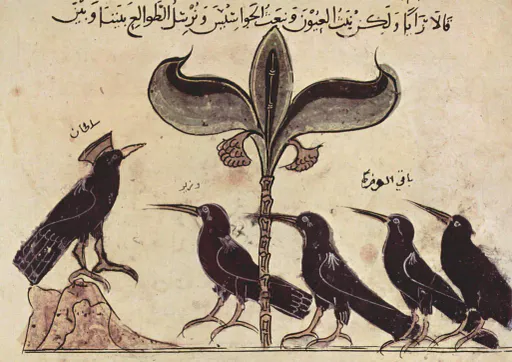 ولكن نبث العيون ونبعث الجواسيس ونرسل الطوالع بيننا وبين
سلطان
وزير
باقي الوزرا